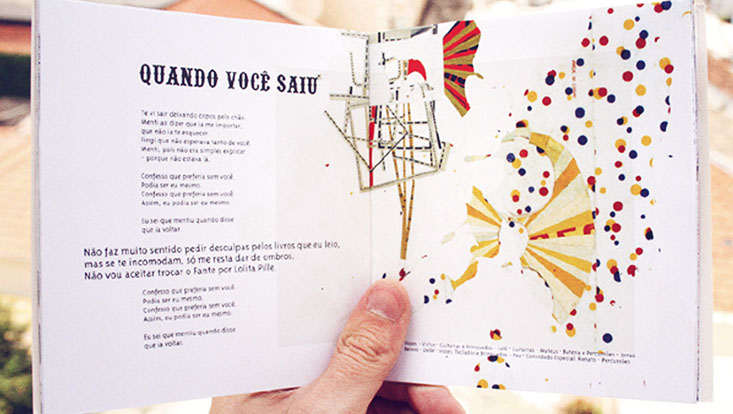 QUANDO VOCÊ SAIU
Te vi sair deixando copos pelo chão.
Menti ao dizer que ia me importar,
que não ia te esquecer.
Fingi que não esperava tanto de você.
Menti, pois não era simples explicar
- porque não estava lá.
Confesso que preferia sem você.
Podia ser eu mesmo.
Confesso que preferia sem você.
Assim, eu podia ser eu mesmo.
Eu sei que mentiu quando disse
que ia voltar.
Não faz muito sentido pedir desculpas pelos livros que eu leio,
mas se te incomodam, só me resta dar de ombros.
Não vou aceitar trocar o Fante por Lolita Pille.
Confesso que preferia sem você.
Podia ser eu mesmo.
Confesso que preferia sem você.
Assim, eu podia ser eu mesmo.
Eu sei que mentiu quando disse
que ia voltar.
Vozes - Victor - Guitarras e Brinquedos - Guitarras - Mateus - Bateria e Percussões - Jonas
Baixos - Vozes, Teclados e Brinquedos - Convidado Especial: Renato - Percussões